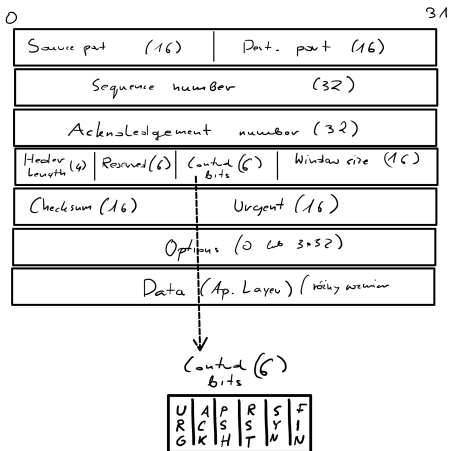 0 31
Source port (16) Dest. port (16)
Sequence number (32)
Acknoledgement number (32)
Header Length (4) Reserved (6) Control bits (6) Window size (16)
Checksum (16) Urgent (16)
Options (0 lub 32)
Data (Ap. Layer) / różny rozmiar
Control (6)
bits
URG ACK PSH RST SYN FIN